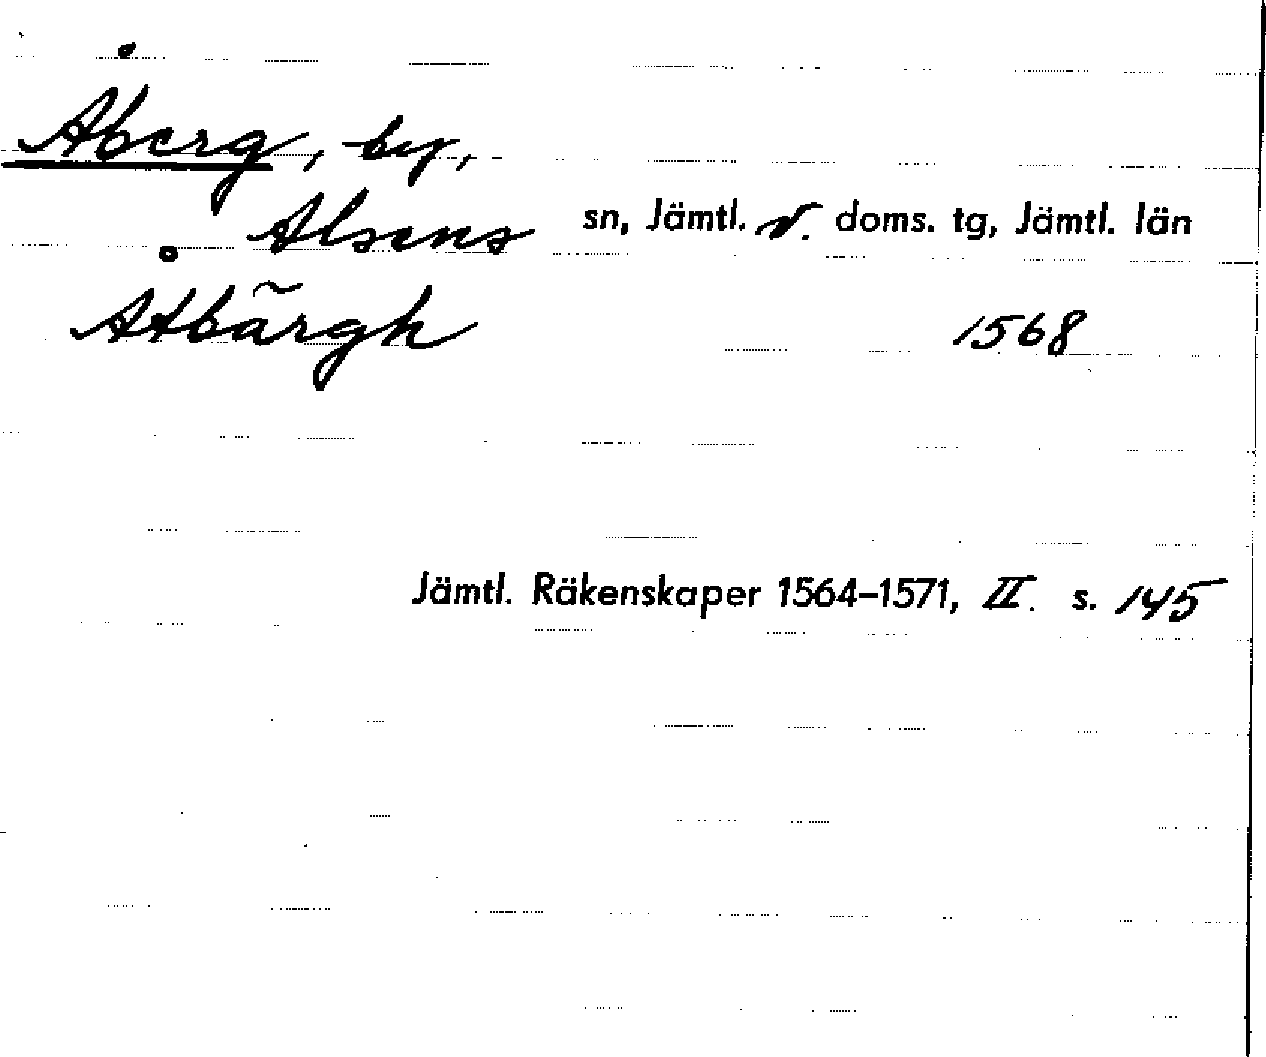 Åberg, by,
Alsens sn, Jämtl. v. doms. tg, Jämtl. län
Åtbãrgh 1568
Jämtl. Räkenskaper 1564-1571, II. s. 145